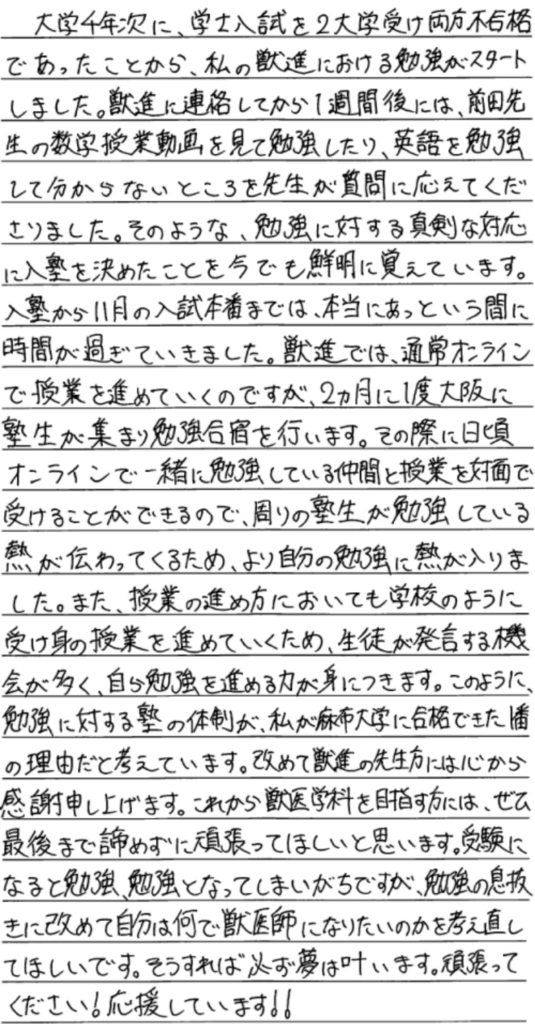 大学4年次に、学士入試を2大学受け両方不合格
であったことから、私の獣進における勉強がスタート
しました。獣進に連絡してから1週間後には、前田先
生の数学授業動画を見て勉強したり、英語を勉強
して分からないところを先生が質問に応えてくだ
さりました。そのような、勉強に対する真剣な対応
に入塾を決めたことを今でも鮮明に覚えています。
入塾から11月の入試本番までは、本当にあっという間に
時間が過ぎていきました。獣進では、通常オンライン
で授業を進めていくのですが、2ヵ月に1度大阪に
塾生が集まり勉強合宿を行います。その際に日頃
オンラインで一緒に勉強している仲間と授業を対面で
受けることができるので、周りの塾生が勉強している
熱が伝わってくるため、より自分の勉強に熱が入りま
した。また、授業の進め方においても学校のように
受け身の授業を進めていくため、生徒が発言する機
会が多く、自ら勉強を進める力が身につきます。このように、
勉強に対する塾の体制が、私が麻布大学に合格できた1番
の理由だと考えています。改めて獣進の先生方には心から
感謝申し上げます。これから獣医学科を目指す方には、ぜひ
最後まで諦めずに頑張ってほしいと思います。受験に
なると勉強、勉強となってしまいがちですが、勉強の息抜
きに改めて自分は何で獣医師になりたいのかを考え直し
てほしいです。そうすれば必ず夢は叶います。頑張って
ください!応援しています!!